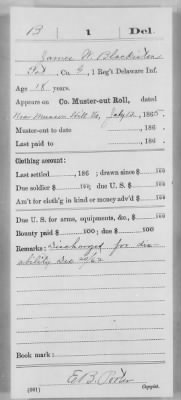 B | 1 | Del.
James W. Blackiston
Pvt., Co. G, 1 Reg't Delaware Inf.
Age 18 years.
Appears on Co. Muster-out Roll, dated
Near Munson Hill Va, July 12, 1865
Muster-out to date , 186 .
Last paid to , 186 .
Clothing account:
Last settled , 186 ; drawn since $ 100
Due soldier $ 100; due U. S. $ 100
Am't for cloth'g in kind or money adv'd $ 100
Due U. S. for arms, equipments, &c., $ 100
Bounty paid $ 100; due $ 100
Remarks: Discharged for dis-
ability Dec /62
Book mark:
E B.
(361) Copyist.